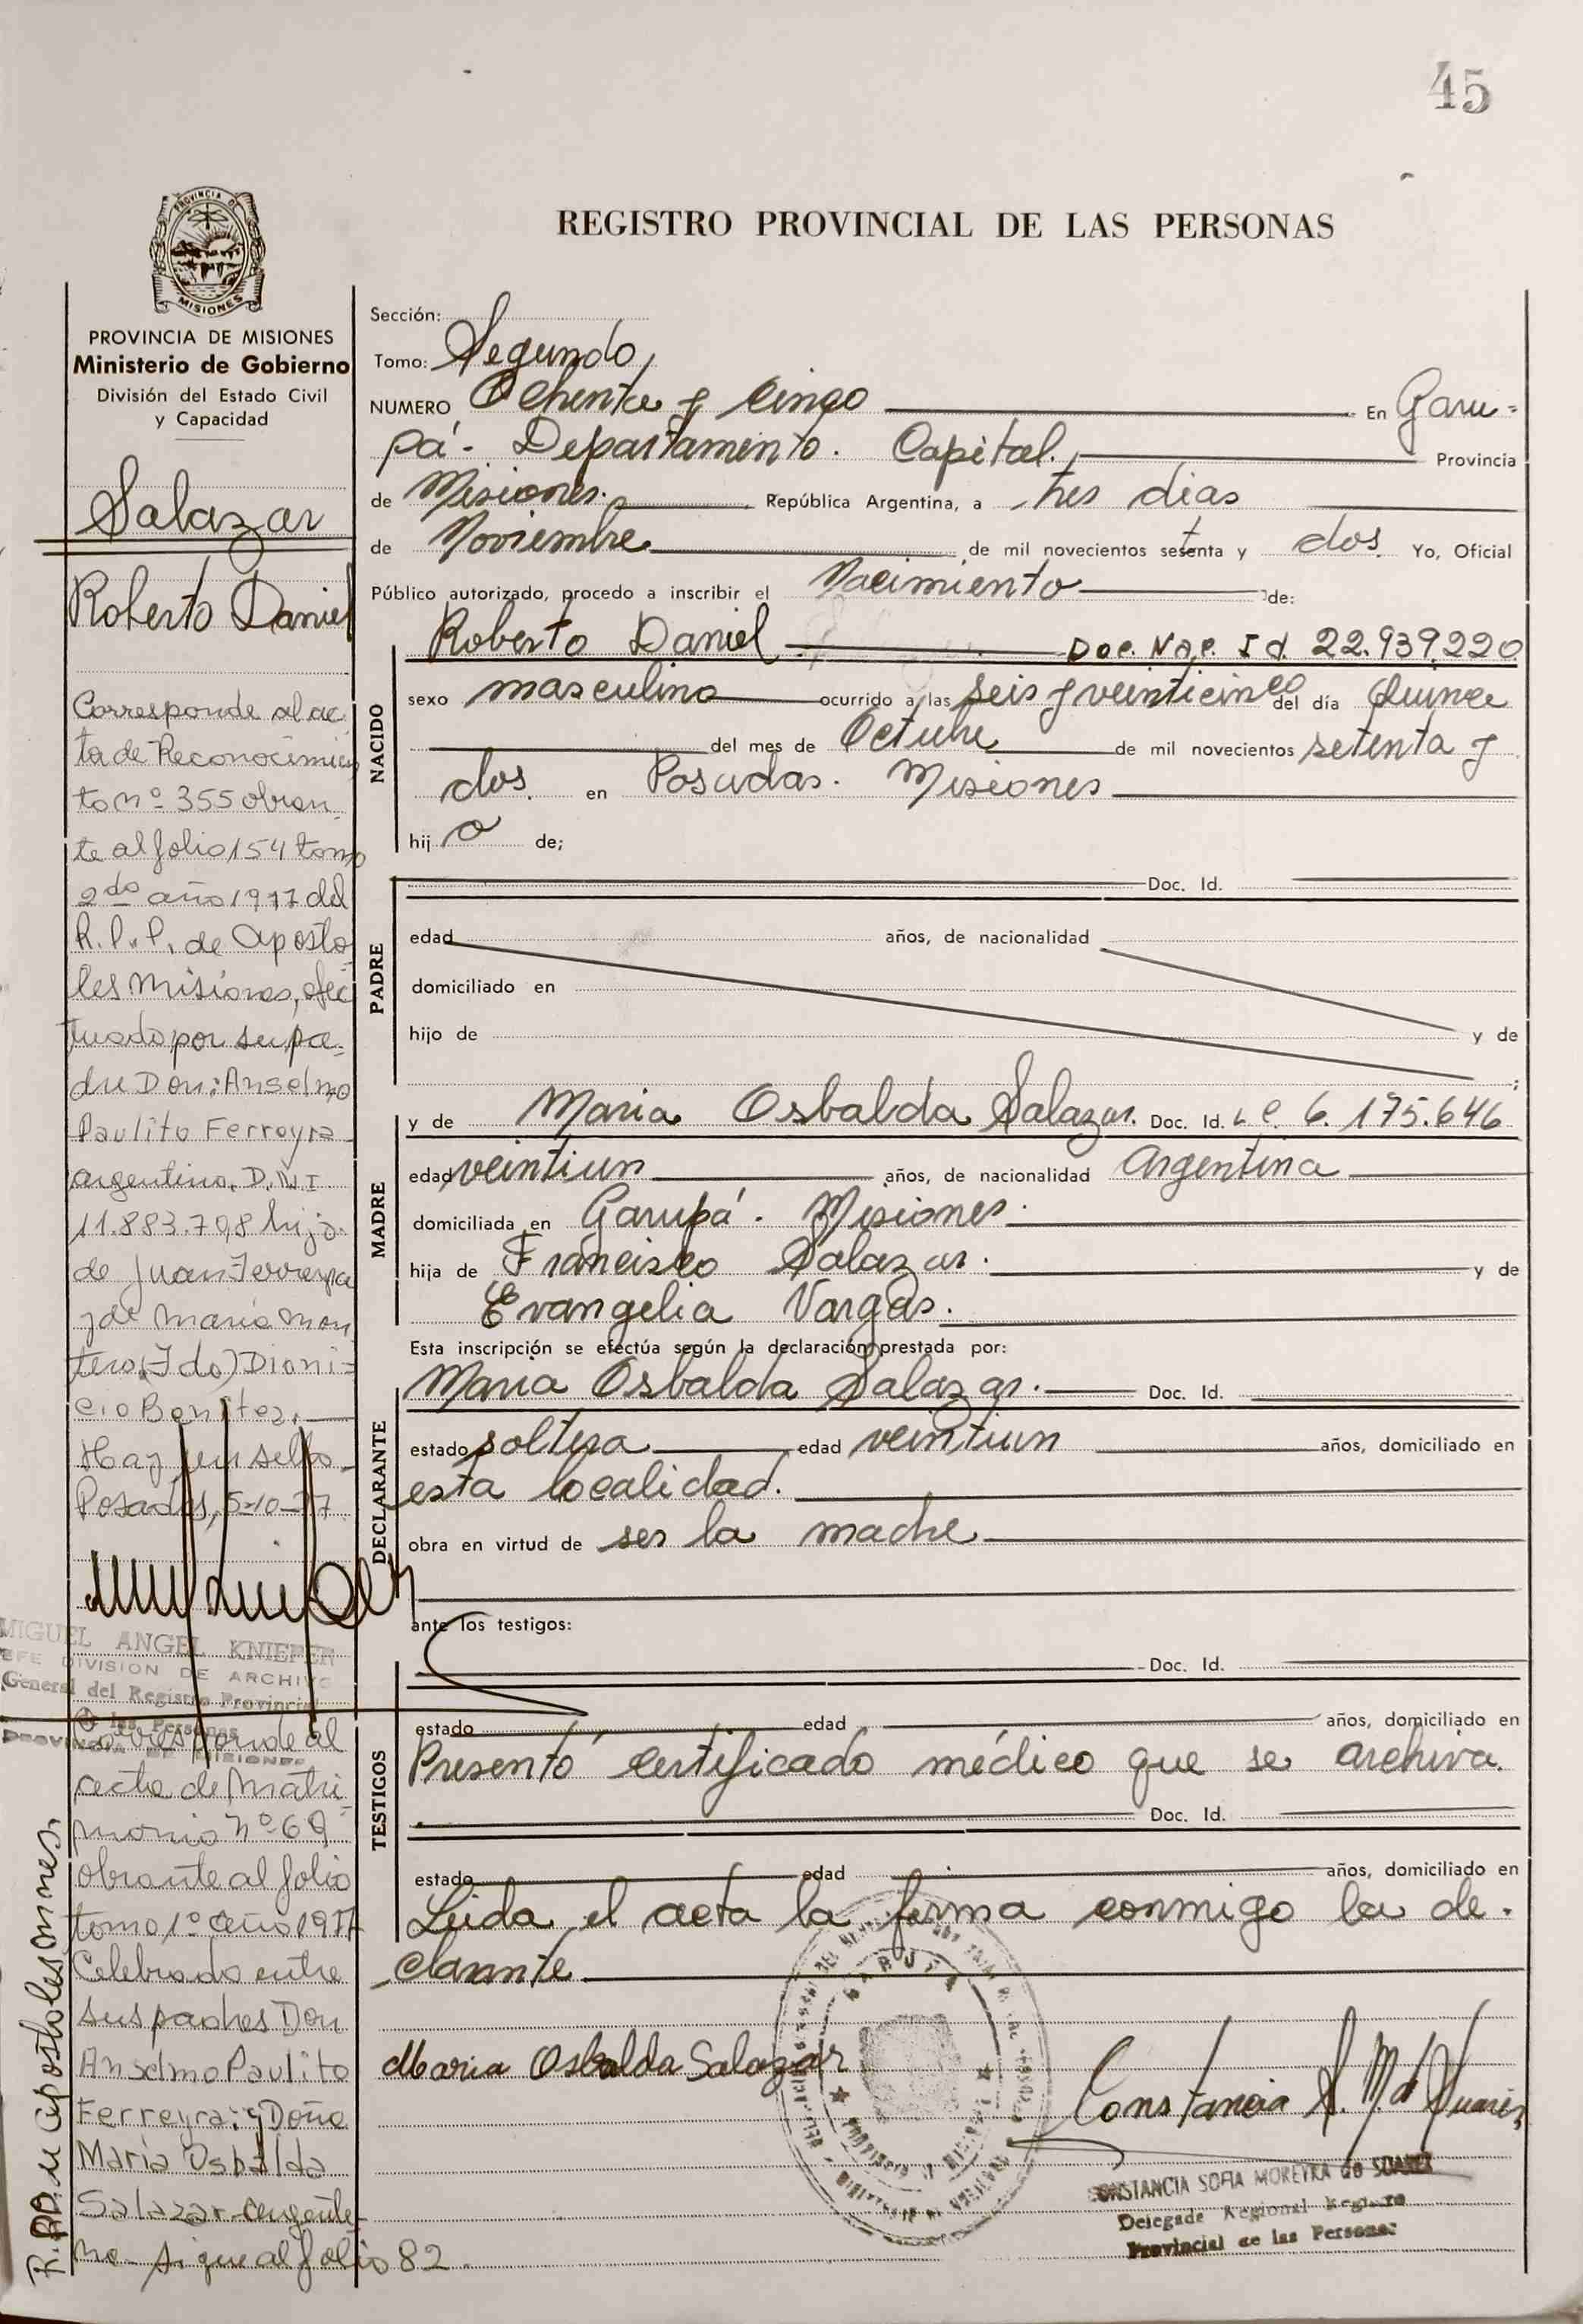 45
REGISTRO PROVINCIAL DE LAS PERSONAS
PROVINCIA DE
MISIONES
PROVINCIA DE MISIONES
Ministerio de Gobierno
División del Estado Civil
y Capacidad
Salazar
Roberto Daniel
Corresponde al ac
ta de Reconocimien
to nº 355 obran
te al folio 154 tomo
2do año 1977 del
R.P.P. de Aposto
les Misiones, efec
tuado por su pa-
dre Don: Anselmo
Paulito Ferreyra
argentino. D.N.I
11.883.798 hijo
de Juan Ferreyra
y de María Mon
tero (Fdo) Dioni=
cio Benitez.
Hay un sello.
Posadas, 5-10-77
MIGUEL ANGEL KNIEPER
JEFE DIVISION DE ARCHIVO
General del Registro Provincial
de las Personas
PROVINCIA DE MISIONES
Corresponde al
acta de Matri-
monio Nº 69
obrante al folio
tomo 1º año 1977
Celebrado entre
sus padres Don
Anselmo Paulito
Ferreyra: y Doña
María Osbalda
Salazar- Argenti
no - Sigue al folio 82.
R.PP. Apostoles Mnes.
Sección:
Tomo: Segundo,
NUMERO Ochenta y Cinco En Garu=
pá - Departamento. Capital. Provincia
de Misiones. República Argentina, a tres dias
de Noviembre de mil novecientos setenta y dos. Yo, Oficial
Público autorizado, procedo a inscribir el Nacimiento de:
NACIDO
Roberto Daniel Doc. Nac. Id 22.939.220
sexo masculino ocurrido a las seis y veinticinco del día Quince
del mes de Octubre de mil novecientos setenta y
dos. en Posadas. Misiones
hij o de;
PADRE
Doc. Id.
edad años, de nacionalidad
domiciliado en
hijo de y de
;
MADRE
y de Maria Osbalda Salazar. Doc. Id. L C. 6.175.646
edad veintiun años, de nacionalidad Argentina
domiciliada en Garupá. Misiones.
hija de Francisco Salazar. y de
Evangelia Vargas.
Esta inscripción se efectúa según la declaración prestada por:
DECLARANTE
Maria Osbalda Salazar. Doc. Id.
estado soltera edad veintiun años, domiciliado en
esta localidad.
obra en virtud de ser la madre
ante los testigos:
TESTIGOS
Doc. Id.
estado edad años, domiciliado en
Presentó certificado médico que se archiva.
Doc. Id.
estado edad años, domiciliado en
Leida el acta la firma conmigo la de-
clarante
Maria Osbalda Salazar
GARUPA
Constancia S. M. d Suarez
CONSTANCIA SOFIA MOREYRA de SUAREZ
Delegada Regional Registro
Provincial de las Personas